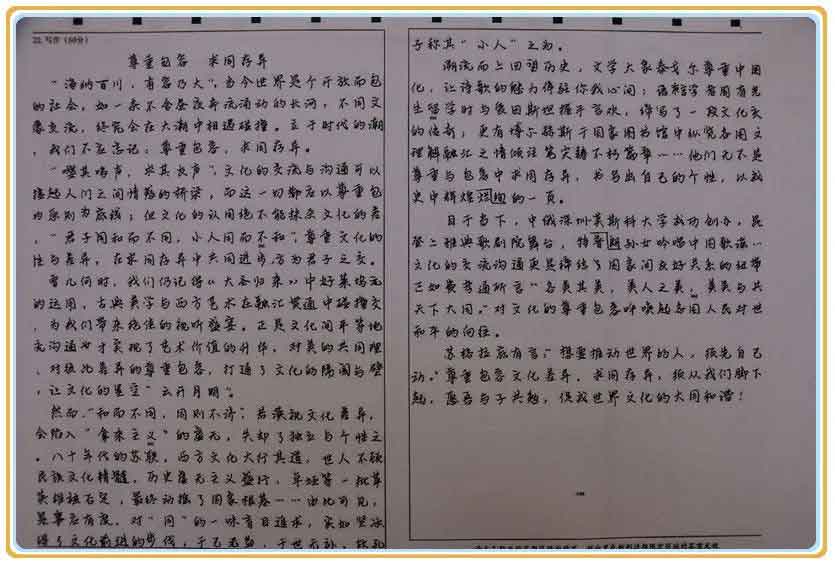 22. 写作（60分）
尊重包容 求同存异
“海纳百川，有容乃大”，当今世界是个开放而包
的社会，如一条不舍昼夜奔流涌动的长河，不同文
交流，终究会在大潮中相遇碰撞。立于时代的潮
，我们不应忘记：尊重包容，求同存异。
“嘤其鸣矣，求其友声”，文化的交流与沟通可以
人们之间情感的桥梁，而这一切都应以尊重包
为原则为底线；但文化的认同绝不能抹杀文化的差
，“君子同和而不同，小人同而不和”，尊重文化的
性与差异，在求同存异中共同进步，方为君子之交。
曾几何时，我们仍记得《大圣归来》中好莱坞元
的运用，古典美学与西方艺术在融汇贯通中碰撞交
，为我们带来绝佳的视听盛宴。正是文化间平等地
交流沟通，才实现了艺术价值的升华，对美的共同理
，对彼此差异的尊重包容，打通了文化的隔阂与壁
，让文化的星空“云开月明”。
然而，“和而不同，同则不济”；若漠视文化差异，
会陷入“拿来主义”的虚无，失却了独立与个性之
。八十年代的苏联，西方文化大行其道，世人不顾
民族文化精髓，历史虚无主义盛行，卓娅等一批革
英雄，最终动摇了国家根基……由此可见，
凡事应有度，对“同”的一味盲目追求，实如坚冰
了文化前进的步伐，于己无易，于世无补，
子称其“小人”之为。
溯流而上回望历史，文学大家泰戈尔尊重中国
化，让诗歌的魅力停驻你我心间；语言学者周有光
生留学时与爱因斯坦握手言欢，缔写了一段文化交
的传奇；更有博尔赫斯于国家图书馆中纵览各国文
理解融汇之情倾注笔尖铸不朽篇章……他们无不是
尊重与包容中求同存异，书写出自己的个性，以致
史中辉煌的一页。
目于当下，中俄深圳莫斯科大学成功创办，昆
登上雅典歌剧院舞台，特普孙女吟唱中国歌谣…
文化的交流沟通更是缔结了国家间友好关系的纽带
正如费孝通所言“各美其美，美人之美，美美与共
天下大同。”对文化的尊重包容呼唤起各国人民对世
和平的向往。
苏格拉底有言，“想要推动世界的人，须先自己
动。”尊重包容文化差异，求同存异，须从我们脚下
起，愿吾与子共勉，促成世界文化的大同和谐！